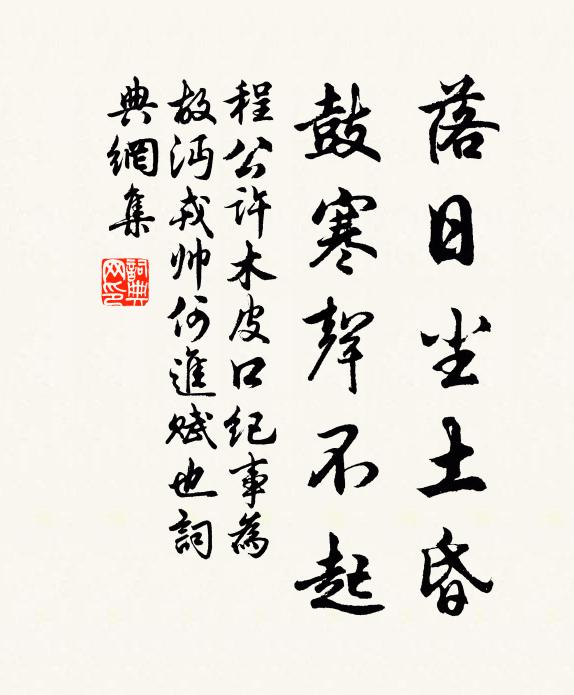 落日尘土昏
鼓寒聲不起
程公许木皮口纪事為
故沔戎帅何進赋也詞
典網集
詞典网印